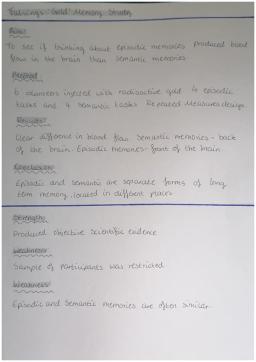 Tulvings 'Gold' Memory Study
Aim:
To see if thinking about episodic memories produced blood
flow in the brain than semantic memories.
Method
6 volunteers injected with radioactive gold 4 episodic
tasks and 4 semantic tasks Repeated Measures design.
Results
Clear different in blood flow Semantic memories - back
of the brain. Episodic memories - front of the brain.
Conclusion
Episodic and semantic are separate forms of long
term memory located in different places
Strength
Produced objective scientific evidence
Weakness
Sample of participants was restricted
Weakness
Episodic and semantic memories are often similar